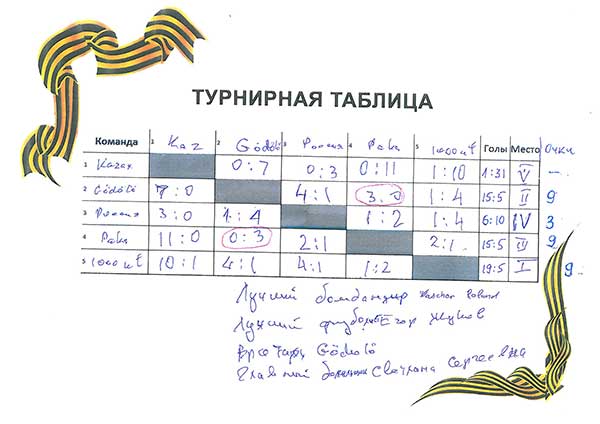 ТУРНИРНАЯ ТАБЛИЦА
Команда 1 Kaz 2 Gödölö 3 Россия 4 Paks 5 1000 ut Голы Место Очки
1 Kazax 0:7 0:3 0:11 1:10 1:31 V –
2 Gödölö 7:0 4:1 3:0 1:4 15:5 II 9
3 Россия 3:0 1:4 1:2 1:4 6:10 IV 3
4 Paks 11:0 0:3 2:1 2:1 15:5 III 9
5 1000 ut 10:1 4:1 4:1 1:2 19:5 I 9
Лучший бомбардир
Лучший футболист Егор Жуков
Вратарь Gödölö
Главный болельщик Светлана Сергеевна